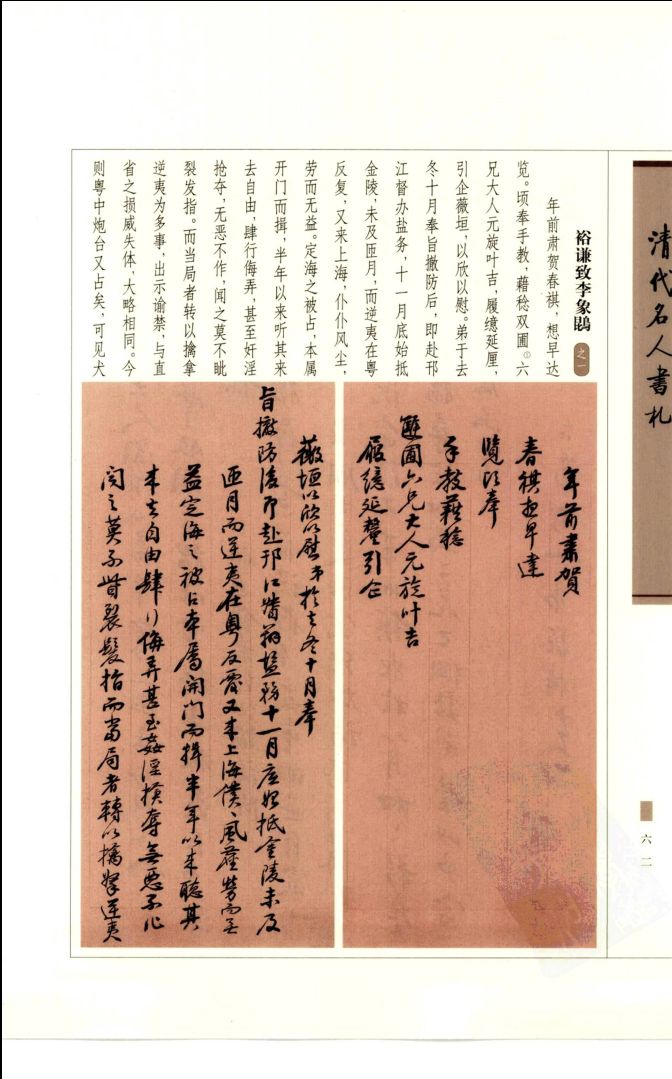 清代名人書札
六二
裕谦致李象鹍 之一
年前肃贺春祺，想早达
览。顷奉手教，藉稔双圃①六
兄大人元旋叶吉，履缋延厘，
引企薇垣，以欣以慰。弟于去
冬十月奉旨撤防后，即赴邗
江督办盐务，十一月底始抵
金陵，未及匝月，而逆夷在粤
反复，又来上海，仆仆风尘，
劳而无益。定海之被占，本属
开门而揖，半年以来听其来
去自由，肆行侮弄，甚至奸淫
抢夺，无恶不作，闻之莫不眦
裂发指。而当局者转以擒拿
逆夷为多事，出示谕禁，与直
省之损威失体，大略相同。今
则粤中炮台又占矣，可见犬
年前肅賀
春祺想早達
覽頃奉
手教藉稔
雙圃六兄大人元旋叶吉
履繶延釐引企
薇垣以欣以慰弟於去冬十月奉
旨撤防後即赴邗江督辦鹽務十一月底始抵金陵未及
匝月而逆夷在粵反覆又來上海僕僕風塵勞而無
益定海之被占本屬開門而揖半年以來聽其
來去自由肆行侮弄甚至姦淫搶奪無惡不作
聞之莫不眥裂髮指而當局者轉以擒拏逆夷